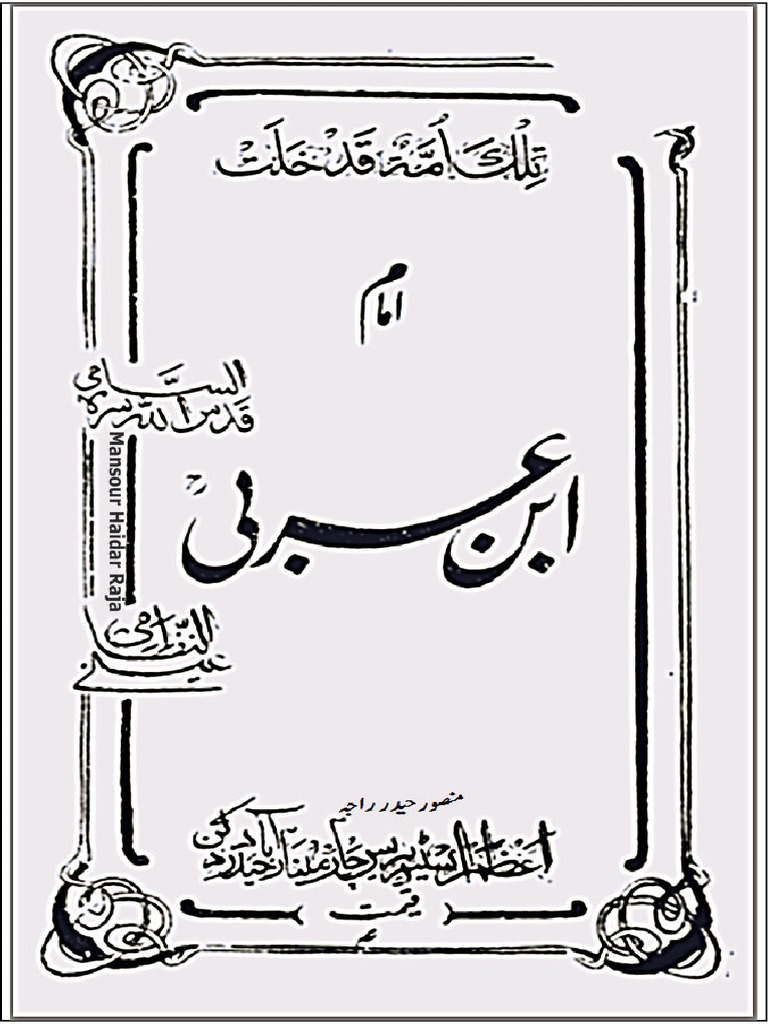 تِلْكَ اُمَّةٌ قَدْ خَلَتْ
امام
السَّامی
قدس اللہ سرہ
ابن عربی
Mansour Haidar Raja
منصور حیدر راجہ
اعظم اسٹیم پریس چار مینار حیدرآباد دکن
قیمت